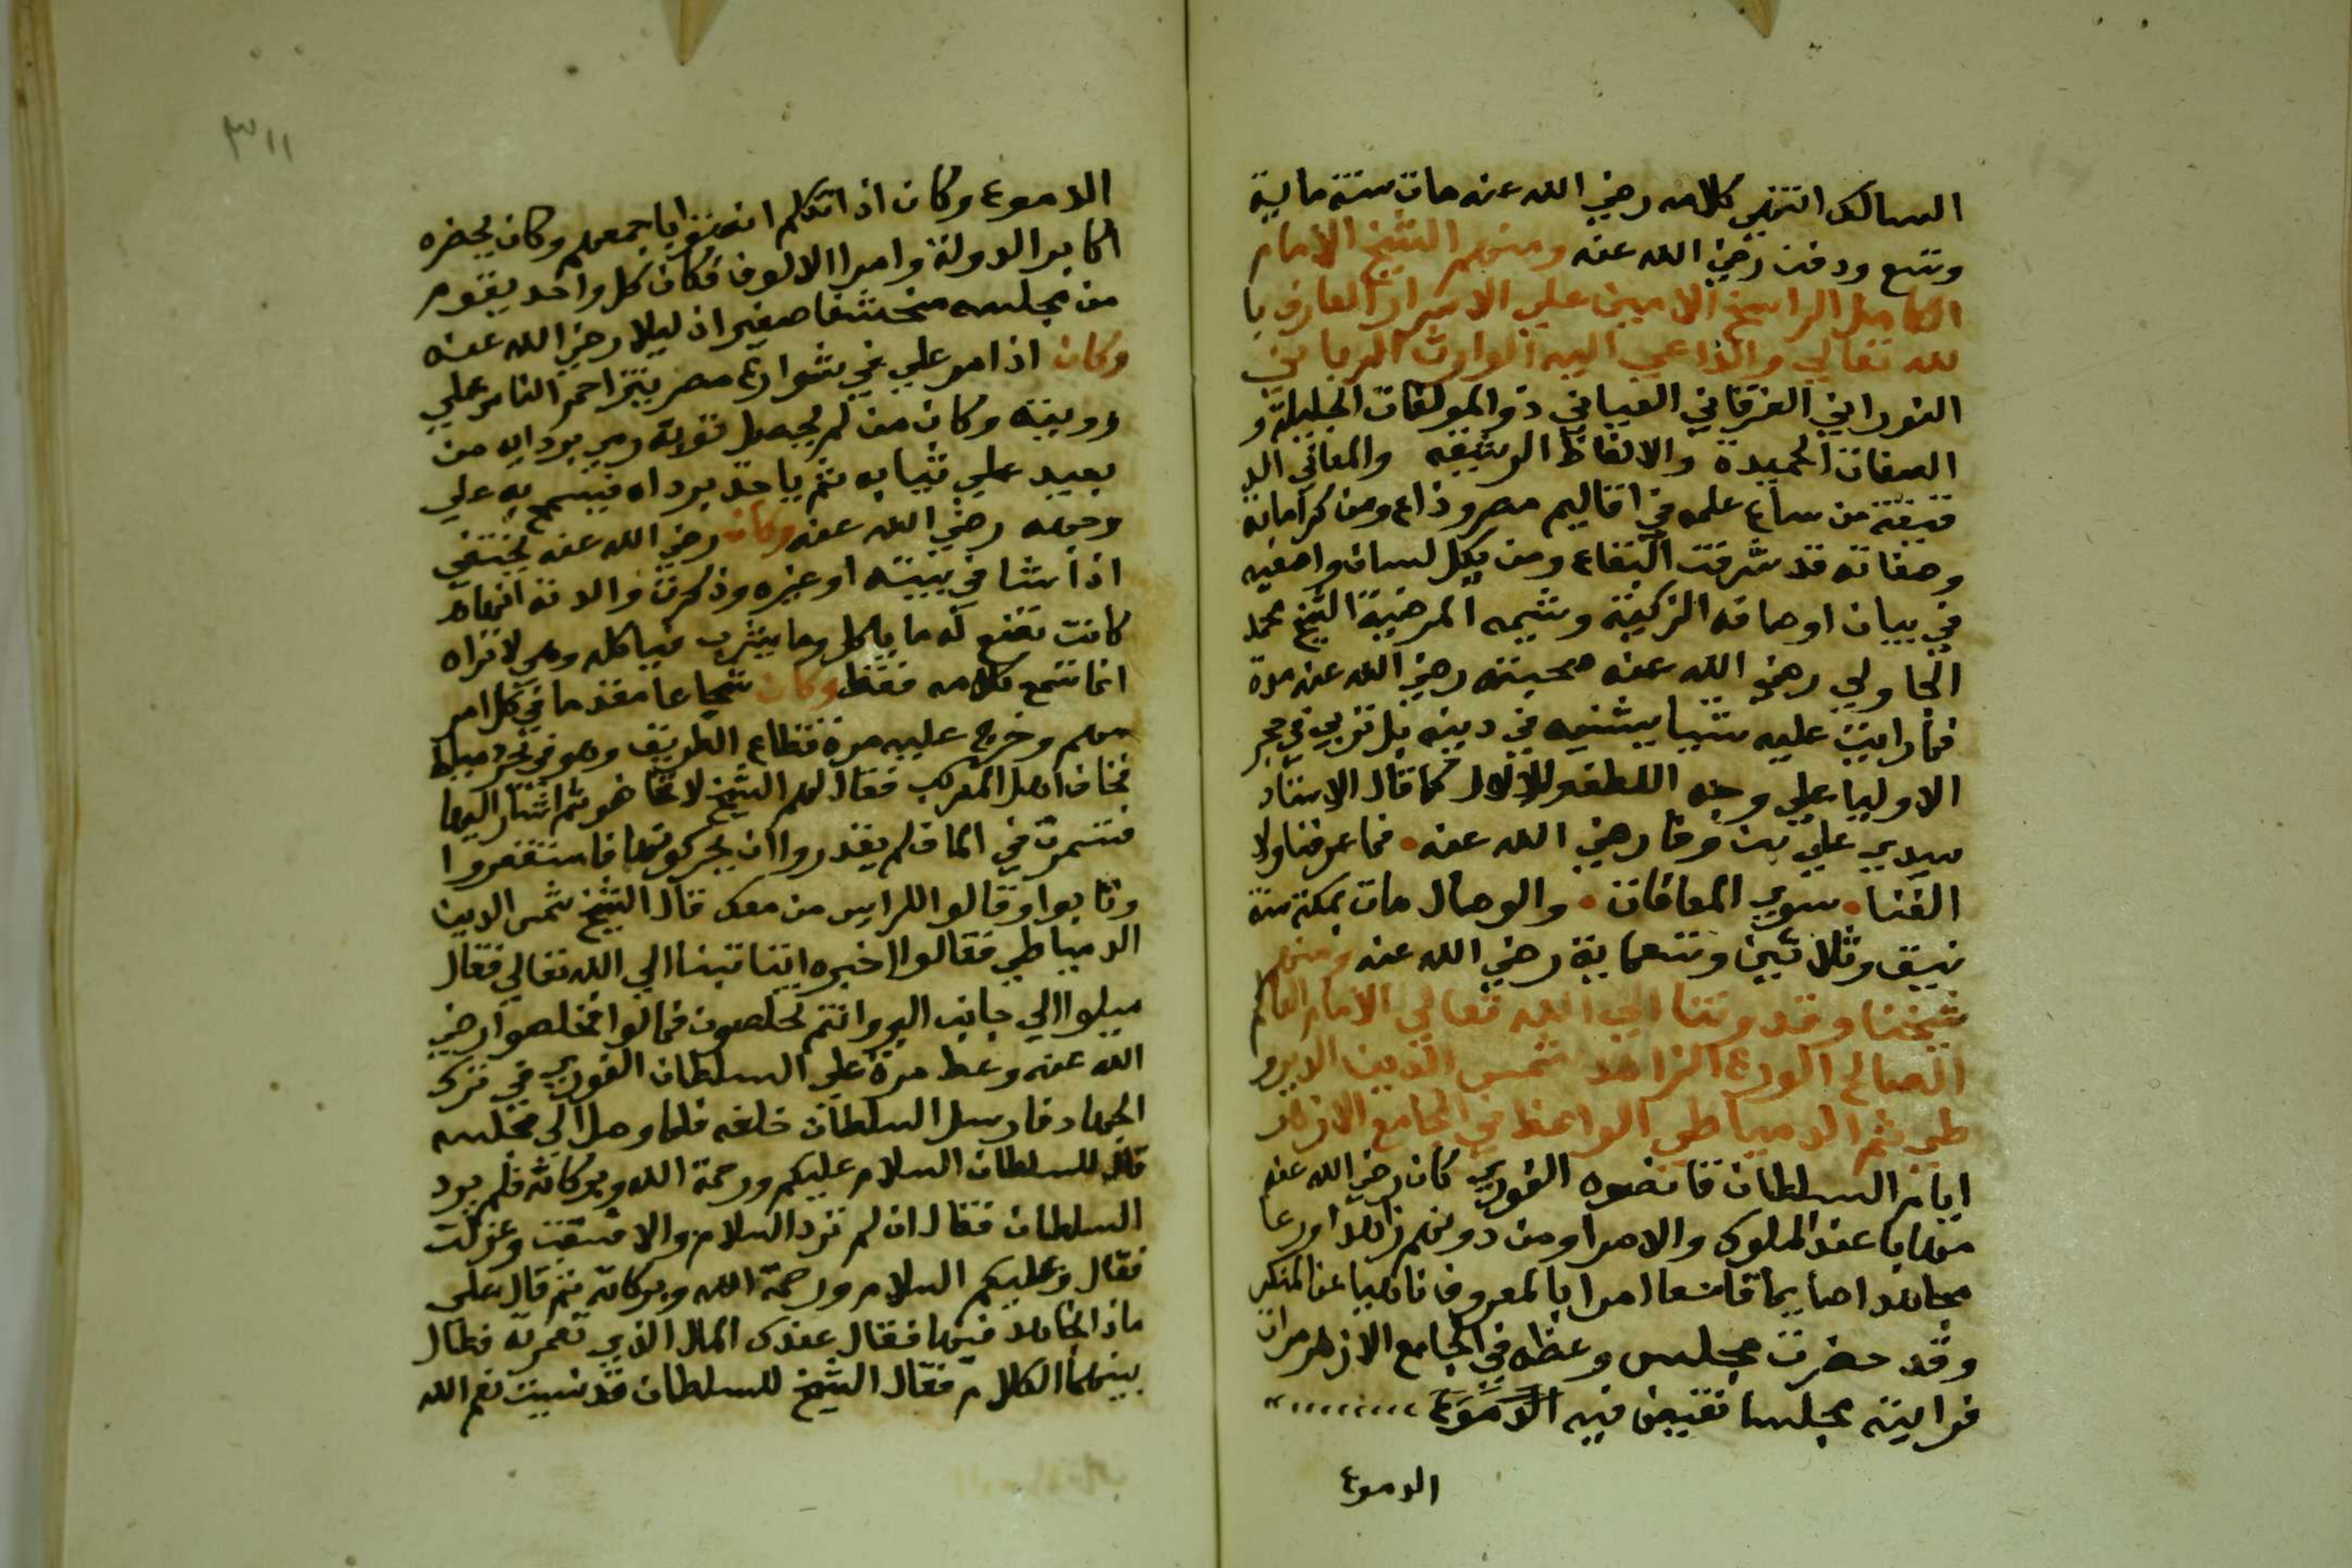 السالك انتهي كلامه رضي الله عنه مات سنة ماية
وتسع ودفن رضي الله عنه ومنهم الشيخ الامام
الكامل الراسخ الامين علي الاسرار العارف با
لله تعالي والداعي اليه الوارث الرباني
النوراني الفرقاني العياني ذو المولفات الجليلة و
الصفات الحميدة والالفاظ الرشيقه والمعاني الد
قيقة من ساع علمه في اقاليم مصر وذاع ومن كراماته
وصفاته قد شرفت البقاع ومن بكل لسان واصفيه
في بيان اوصافه الزكية وشيمه المرضية الشيخ محمد
الجاولي رضي الله عنه صحبته رضي الله عنه مدة
فما رايت عليه شيا يشنيه في دينه بل تربي في حجر
الاوليا علي وجه اللطف والدلال كما قال الاستاد
سيدي علي بن وفا رضي الله عنه فما عرفنا ولا
الفنا سوي الموافات والوصال مات بمكة سنة
نيف وثلاثين وتسعماية رضي الله عنه ومنهم
شيخنا وقدوتنا الي الله تعالي الامام العالم
الصالح الورع الزاهد شمس الدين الديرو
طي ثم الدمياطي الواعظ في الجامع الازهر
ايام السلطان قانصوه الغوري كان رضي الله عنه
مهابا عند الملوك والامرا ومن دونهم زاهدا ورعا
مجاهدا صايما قايما امرا بالمعروف ناهيا عن المنكر
وقد حضرت مجلس وعظه في الجامع الازهر مرات
فرايته مجلسا تفيض فيه الدموع
الدموع
٣١١
الدموع وكان اذا تكلم انصتوا باجمعهم وكان يحضره
اكابر الدولة وامرا الالوف فكان كل واحد يقوم
من مجلسه متخشعا صغيرا ذليلا رضي الله عنه
وكان اذا مر علي في شوارع مصر يتزاحم الناس علي
رويته وكان من لم يحصل ثوبه رمي برداه من
بعيد علي ثيابه ثم ياخذ برداه فيمسح به علي
وجهه رضي الله عنه وكان رضي الله عنه يختفي
اذا شا في بيته او غيره وذكرت والدته انها
كانت تضع له ما ياكل وما يشرب فياكله وهي لا تراه
انما تسمع كلامه فقط وكان شجاعا مقدما في كل امر
مهم وخرج عليه مرة قطاع الطريق وهو في بحر دمياط
فخاف اهل المركب فقال لهم الشيخ لا تخافو ثم اشار اليها
فتسمرت في الما فلم يقدروا ان يحركوها فاستغفروا
وتابوا وقالوا للرايس من معك قال الشيخ شمس الدين
الدمياطي فقالوا اخبره اننا تبنا الي الله تعالي فقال
ميلوا الي جانب البر وانتم تخلصون فمالوا فخلصوا رضي
الله عنه وعط مرة علي السلطان الغوري في ترك
الجهاد فارسل السلطان خلفه فلما وصل الي مجلسه
قال للسلطان السلام عليكم ورحمة الله وبركاته فلم يرد
السلطان فقال ان لم ترد السلام والا فسقت وعزلت
فقال وعليكم السلام ورحمة الله وبركاته ثم قال علي
ماذا نجاهد فقال عندك المال الذي تعمر به فطال
بينهما الكلام فقال الشيخ للسلطان قد نسيت نعم الله